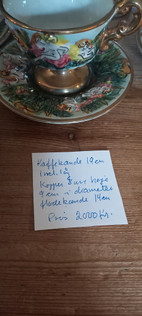 Kaffekande 18 cm
Kopper 5 cm høje
9 cm i diameter
flødekande 14 cm
Pris 2000 kr.